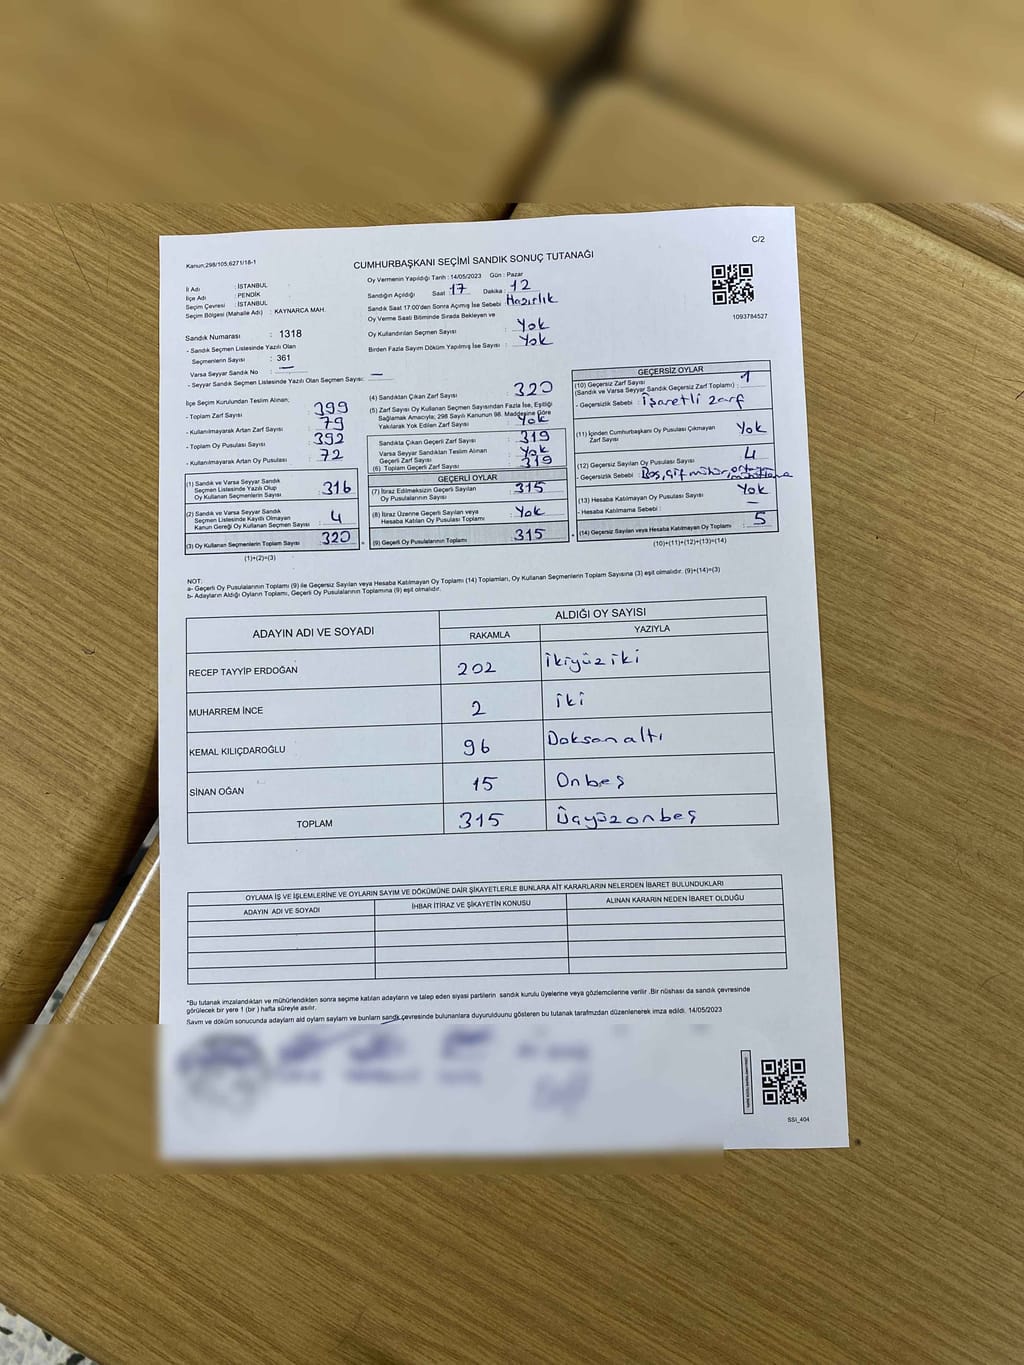 C/2
Kanun;298/105;6271/18-1
CUMHURBAŞKANI SEÇİMİ SANDIK SONUÇ TUTANAĞI
İl Adı : İSTANBUL
İlçe Adı : PENDİK
Seçim Çevresi : İSTANBUL
Seçim Bölgesi (Mahalle Adı) : KAYNARCA MAH.
Oy Vermenin Yapıldığı Tarih : 14/05/2023 Gün : Pazar
Sandığın Açıldığı Saat : 17 Dakika : 12
Sandık Saat 17:00'den Sonra Açılmış İse Sebebi : Hazırlık
Oy Verme Saati Bitiminde Sırada Bekleyen ve
Oy Kullandırılan Seçmen Sayısı : Yok
Birden Fazla Sayım Döküm Yapılmış İse Sayısı : Yok
1093784527
Sandık Numarası : 1318
- Sandık Seçmen Listesinde Yazılı Olan
Seçmenlerin Sayısı : 361
Varsa Seyyar Sandık No : —
- Seyyar Sandık Seçmen Listesinde Yazılı Olan Seçmen Sayısı: —
İlçe Seçim Kurulundan Teslim Alınan;
- Toplam Zarf Sayısı : 399
- Kullanılmayarak Artan Zarf Sayısı : 79
- Toplam Oy Pusulası Sayısı : 392
- Kullanılmayarak Artan Oy Pusulası : 72
(1) Sandık ve Varsa Seyyar Sandık
Seçmen Listesinde Yazılı Olup
Oy Kullanan Seçmenlerin Sayısı : 316
(2) Sandık ve Varsa Seyyar Sandık
Seçmen Listesinde Kayıtlı Olmayan
Kanun Gereği Oy Kullanan Seçmen Sayısı : 4
(3) Oy Kullanan Seçmenlerin Toplam Sayısı : 320
(1)+(2)=(3)
(4) Sandıktan Çıkan Zarf Sayısı : 320
(5) Zarf Sayısı Oy Kullanan Seçmen Sayısından Fazla İse, Eşitliği
Sağlamak Amacıyla; 298 Sayılı Kanunun 98. Maddesine Göre
Yakılarak Yok Edilen Zarf Sayısı : Yok
Sandıkta Çıkan Geçerli Zarf Sayısı : 319
Varsa Seyyar Sandıktan Teslim Alınan
Geçerli Zarf Sayısı : Yok
(6) Toplam Geçerli Zarf Sayısı : 319
GEÇERLİ OYLAR
(7) İtiraz Edilmeksizin Geçerli Sayılan
Oy Pusulalarının Sayısı : 315
(8) İtiraz Üzerine Geçerli Sayılan veya
Hesaba Katılan Oy Pusulası Toplamı : Yok
(9) Geçerli Oy Pusulalarının Toplamı : 315
GEÇERSİZ OYLAR
(10) Geçersiz Zarf Sayısı
(Sandık ve Varsa Seyyar Sandık Geçersiz Zarf Toplamı) : 1
- Geçersizlik Sebebi : İşaretli zarf
(11) İçinden Cumhurbaşkanı Oy Pusulası Çıkmayan
Zarf Sayısı : Yok
(12) Geçersiz Sayılan Oy Pusulası Sayısı : 4
- Geçersizlik Sebebi : Boş, çift mühür,
(13) Hesaba Katılmayan Oy Pusulası Sayısı : Yok
- Hesaba Katılmama Sebebi : —
(14) Geçersiz Sayılan veya Hesaba Katılmayan Oy Toplamı : 5
(10)+(11)+(12)+(13)=(14)
NOT:
a- Geçerli Oy Pusulalarının Toplamı (9) ile Geçersiz Sayılan veya Hesaba Katılmayan Oy Toplamı (14) Toplamları, Oy Kullanan Seçmenlerin Toplam Sayısına (3) eşit olmalıdır. (9)+(14)=(3)
b- Adayların Aldığı Oyların Toplamı, Geçerli Oy Pusulalarının Toplamına (9) eşit olmalıdır.
ADAYIN ADI VE SOYADI ALDIĞI OY SAYISI
RAKAMLA YAZIYLA
RECEP TAYYİP ERDOĞAN 202 İkiyüziki
MUHARREM İNCE 2 İki
KEMAL KILIÇDAROĞLU 96 Doksanaltı
SİNAN OĞAN 15 Onbeş
TOPLAM 315 Üçyüzonbeş
OYLAMA İŞ VE İŞLEMLERİNE VE OYLARIN SAYIM VE DÖKÜMÜNE DAİR ŞİKAYETLERLE BUNLARA AİT KARARLARIN NELERDEN İBARET BULUNDUKLARI
ADAYIN ADI VE SOYADI İHBAR İTİRAZ VE ŞİKAYETİN KONUSU ALINAN KARARIN NEDEN İBARET OLDUĞU
*Bu tutanak imzalandıktan ve mühürlendikten sonra seçime katılan adayların ve talep eden siyasi partilerin sandık kurulu üyelerine veya gözlemcilerine verilir .Bir nüshası da sandık çevresinde
görülecek bir yere 1 (bir ) hafta süreyle asılır.
Sayım ve döküm sonucunda adayların ald oyların sayların ve bunların sandk çevresinde bulunanlara duyurulduunu gösteren bu tutanak tarafmzdan düzenlenerek imza edildi. 14/05/2023
SSI_404